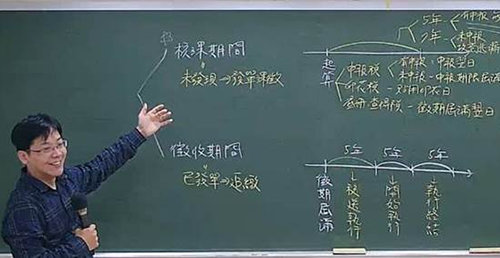 核課期間
未發現→發單課徵
徵收期間
已發單→追繳
5年
7年
未申報
起算
申報稅
有申報-申報翌日
未申報-申報期限屆滿
印花稅
底冊、查得稅-徵期屆滿翌日
5年 5年 5年
徵期屆滿
移送執行
開始執行
執行終結